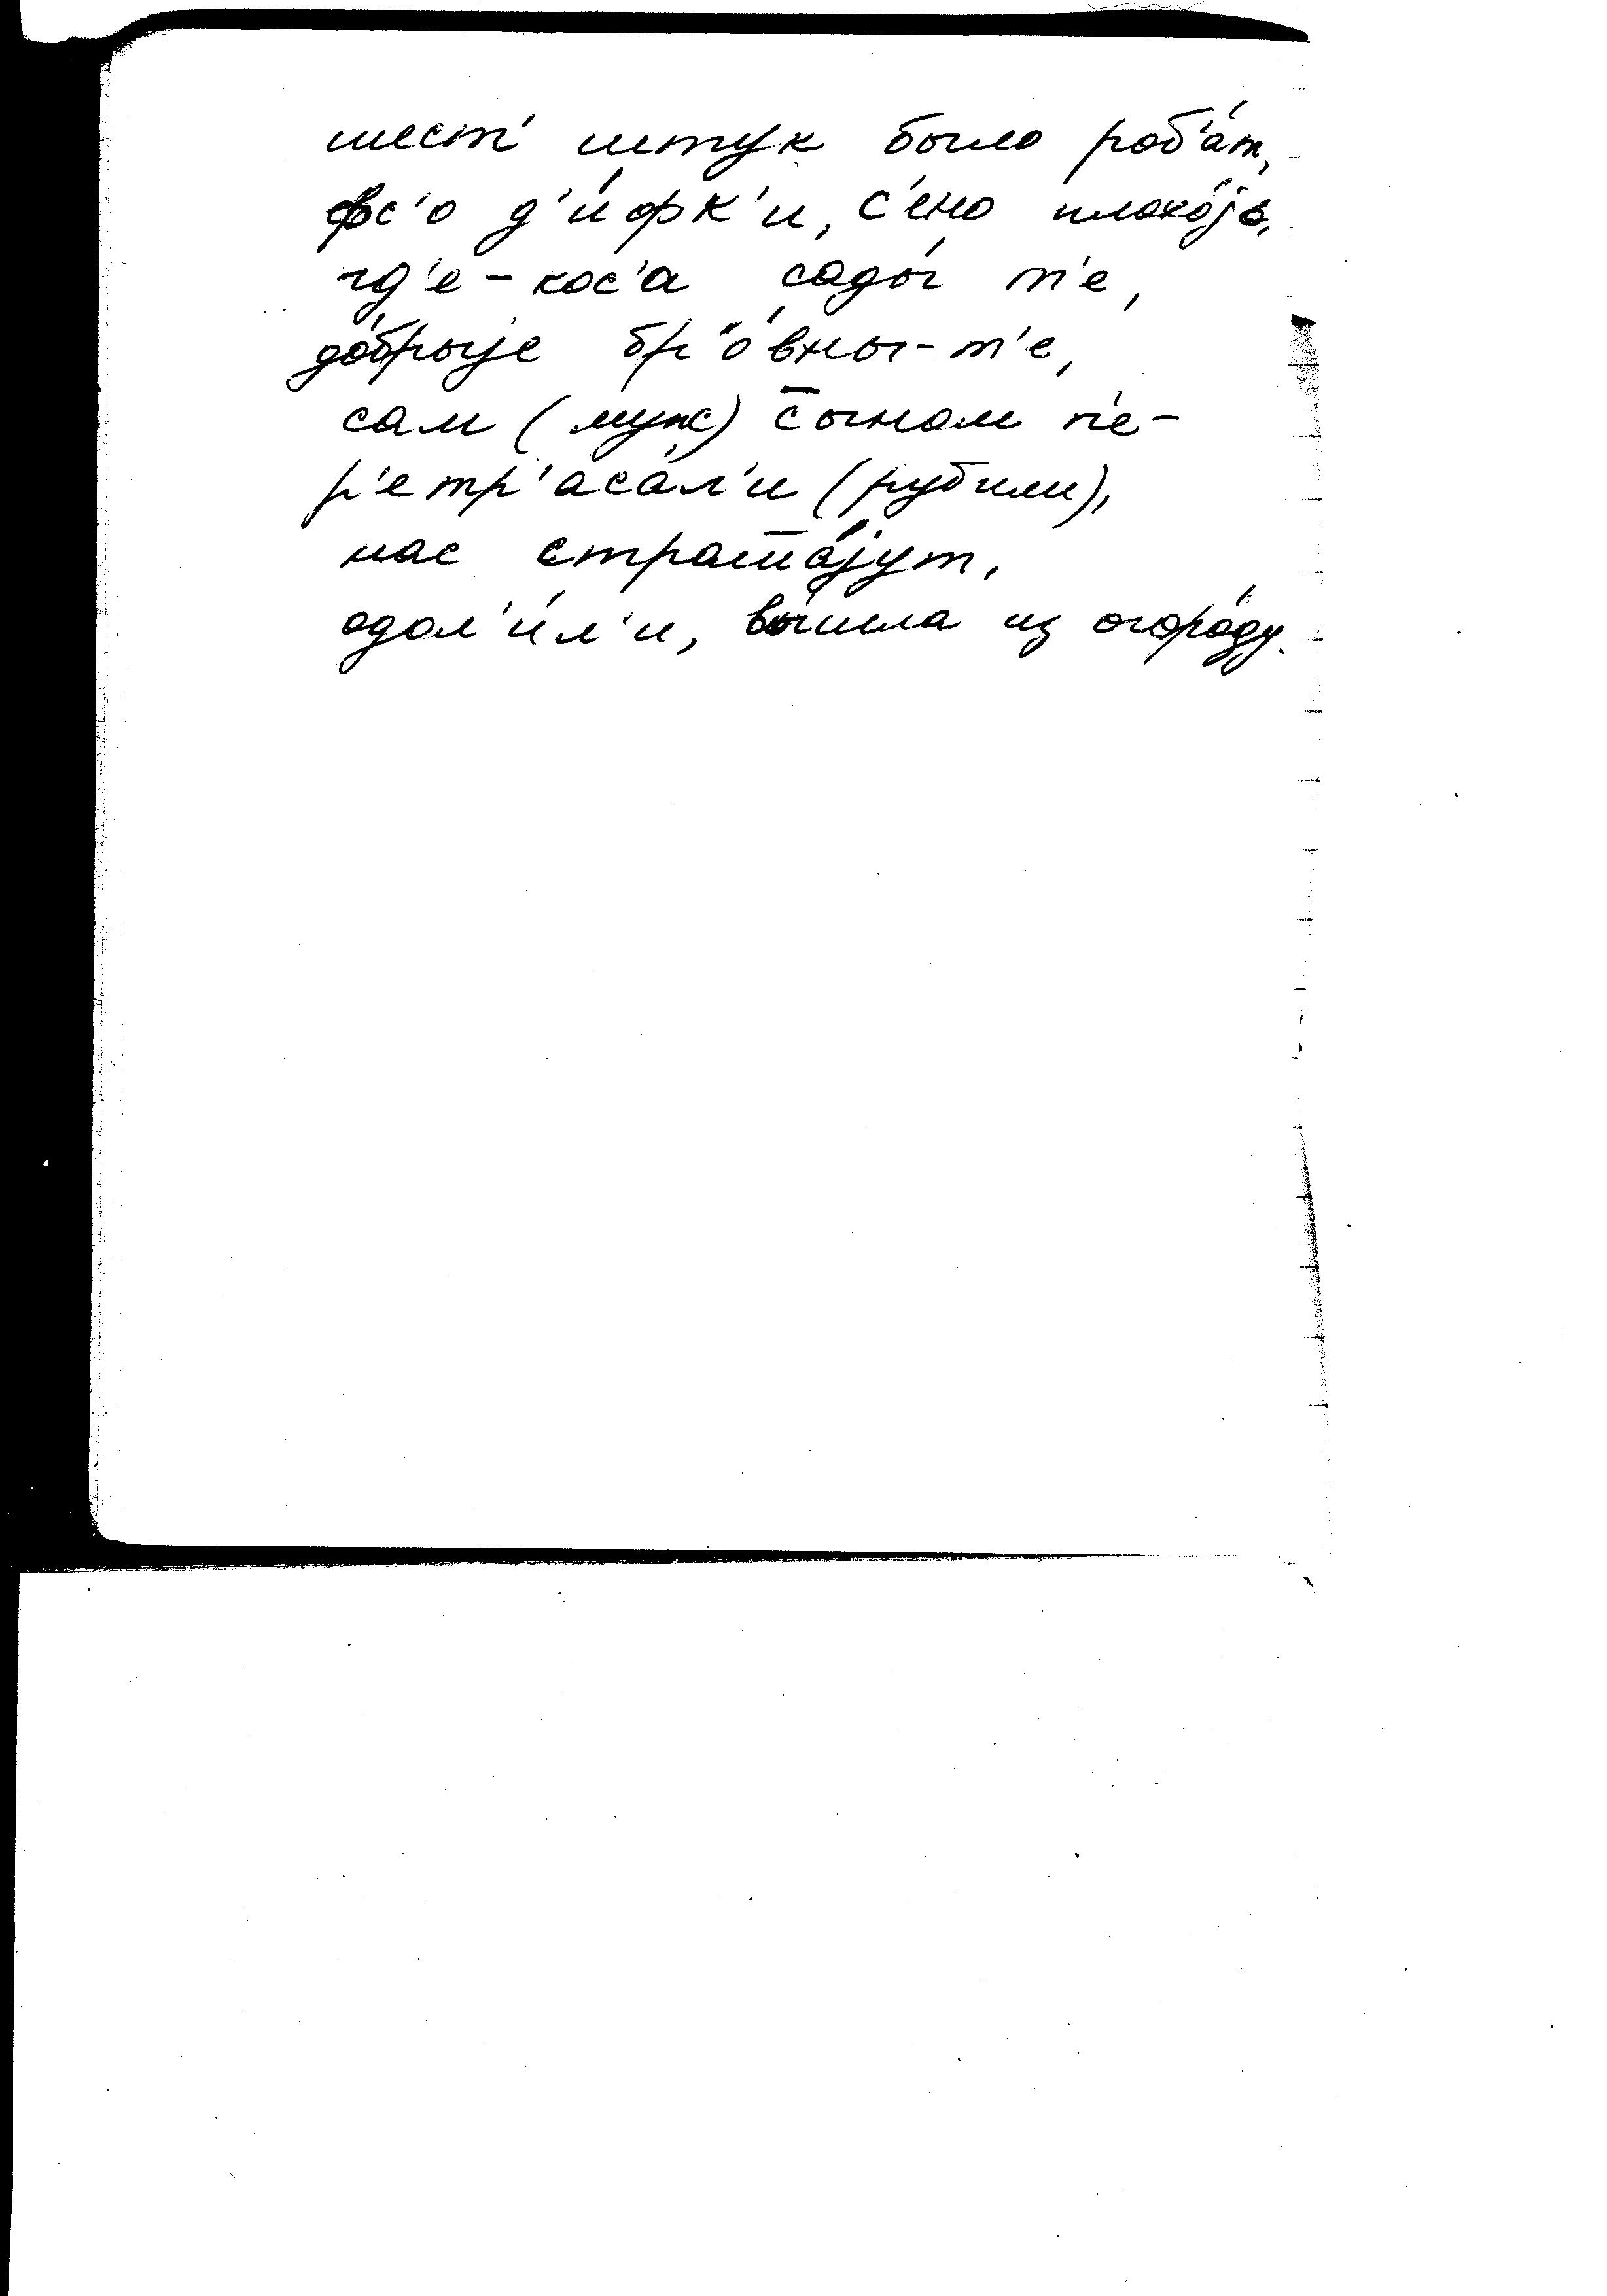 шест' штук было роб'а́т,
фс'о д'и́фк'и, с'ено плохо́jь,
гд'е-кос'а сады́ т'е,
до́брыjе бр'о́вны-т'е,
сам (муж) с̄ыном п'е-
р'етр'аса́л'и (рубили),
нас страш̄а́jут,
одол'и́л'и, вы́шла из огоро́ду.